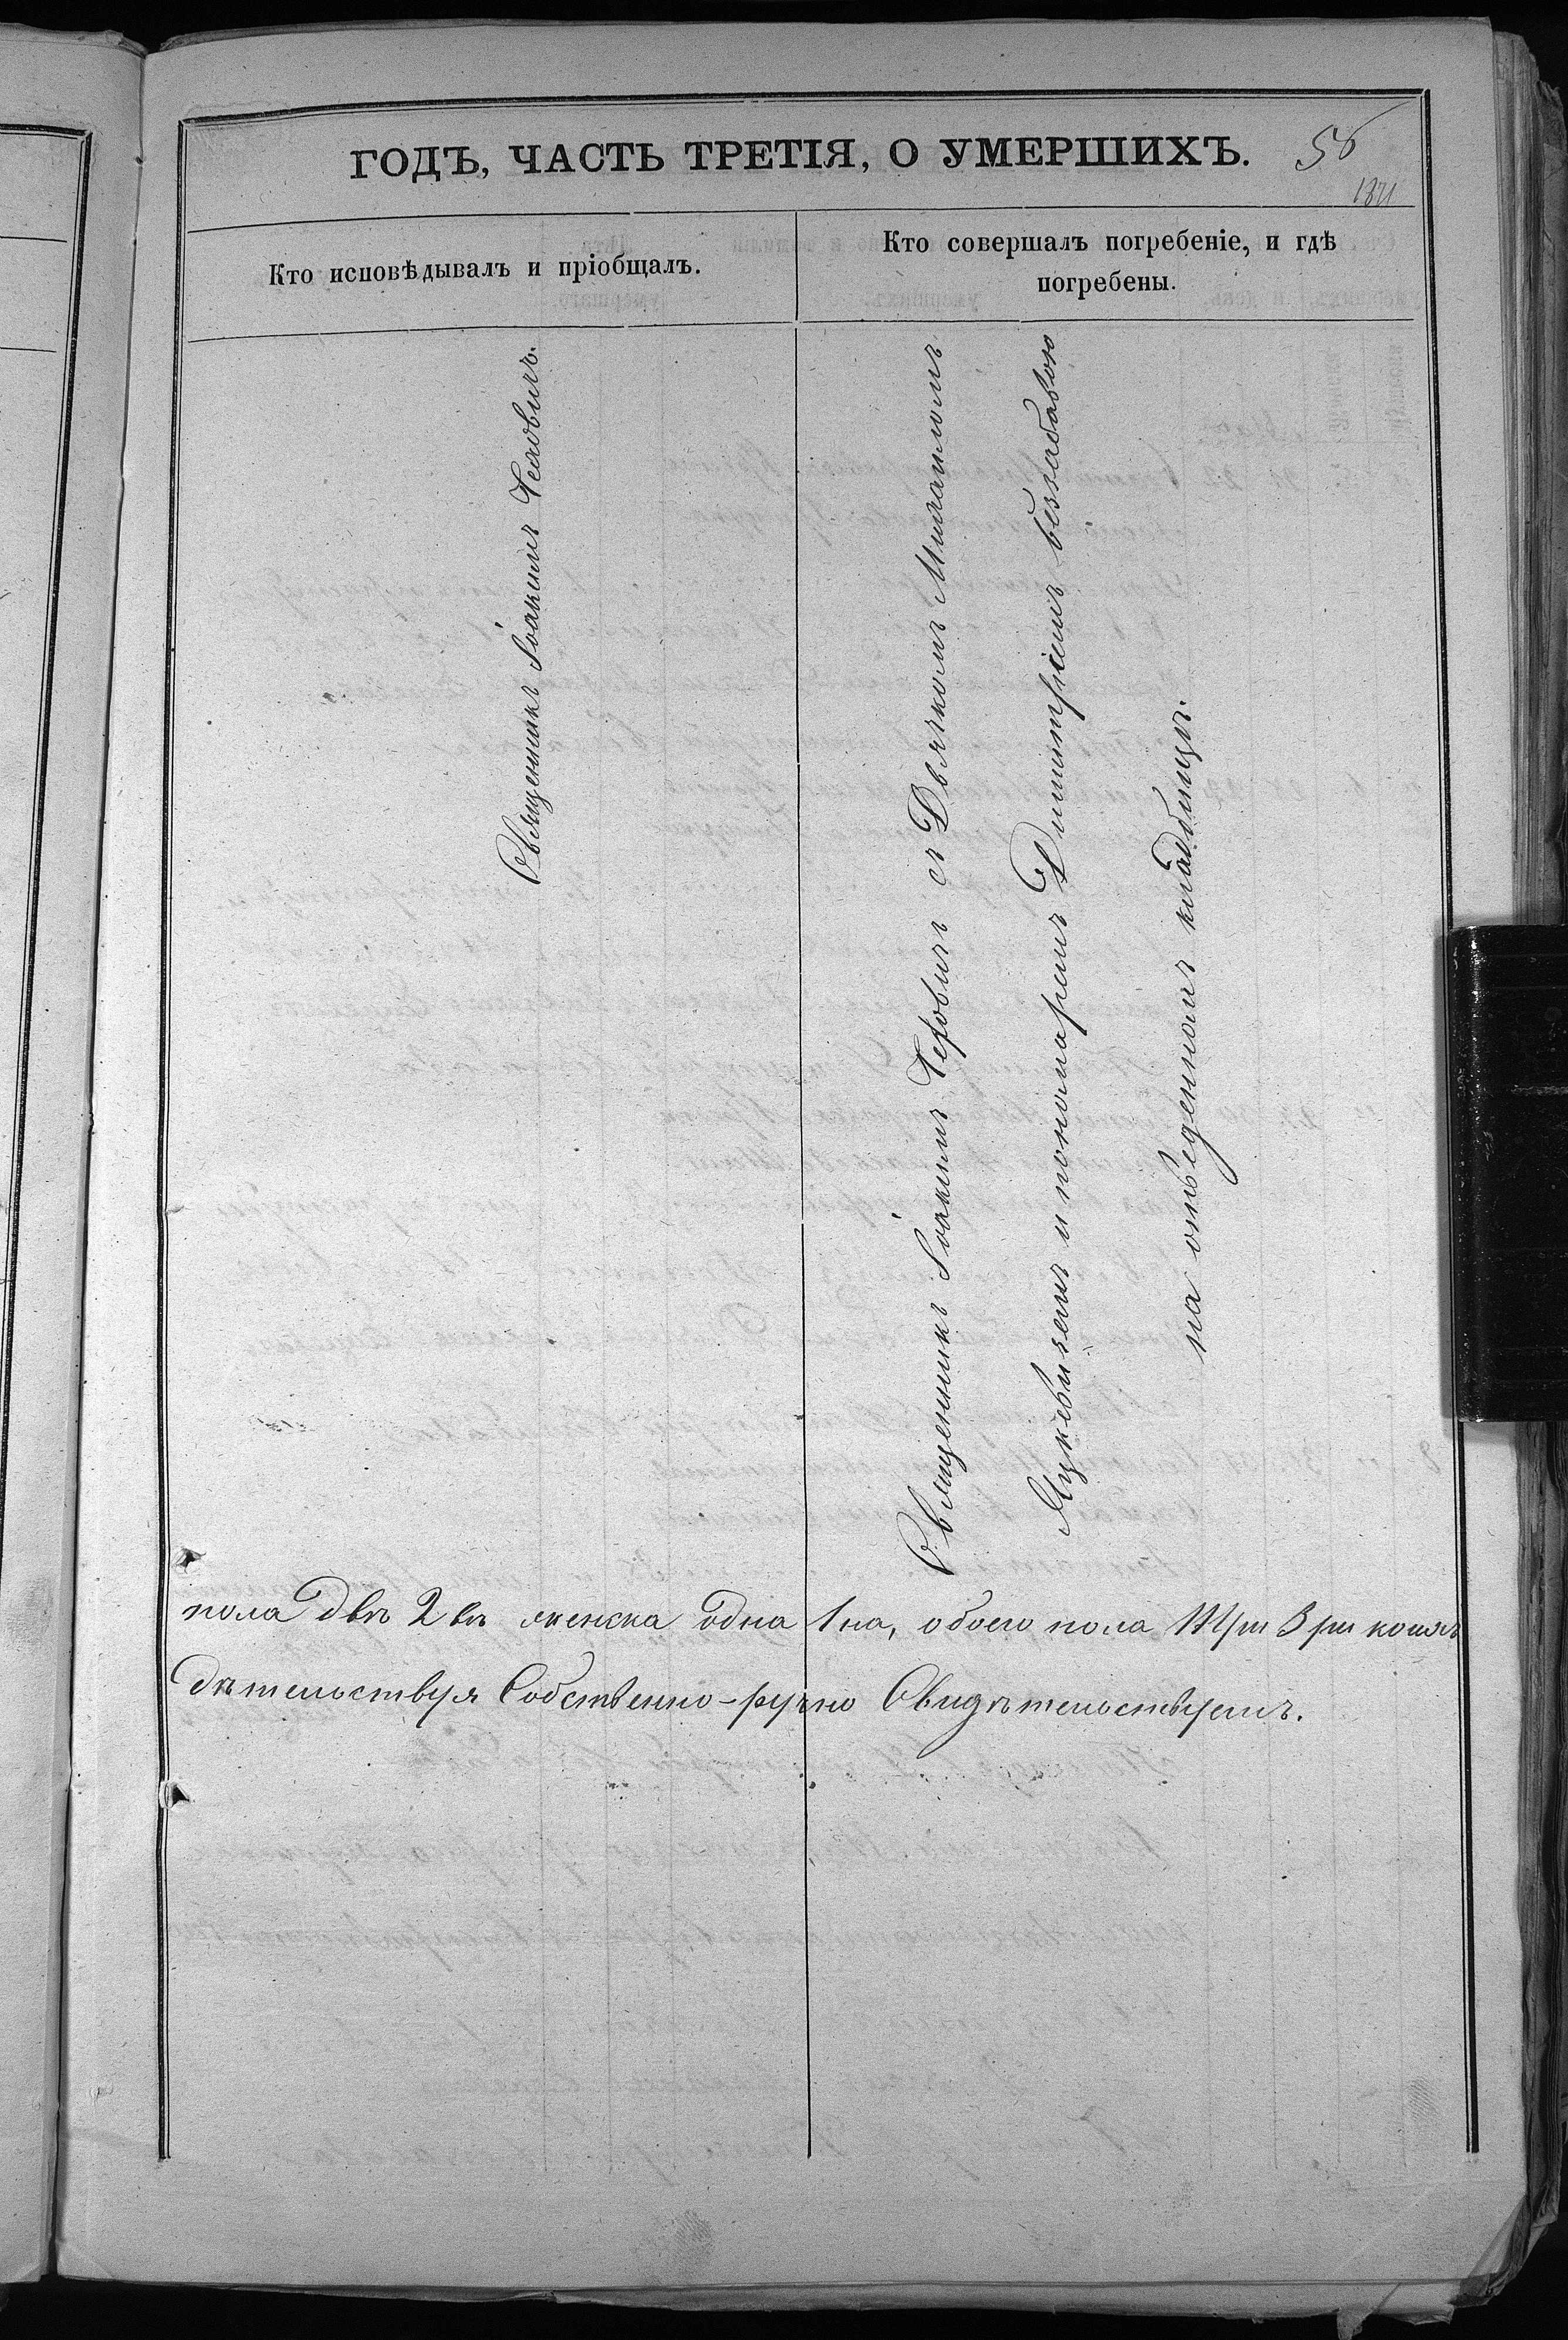 ГОДЪ, ЧАСТЬ ТРЕТІЯ, О УМЕРШИХЪ.
56
1871
Кто исповѣдывалъ и пріобщалъ.
Кто совершалъ погребеніе, и гдѣ
погребены.
Священникъ Іоакимъ
Священникъ Іоакимъ съ Дьячкомъ
Яцкевичемъ и пономаремъ Димитріемъ Беззабавою
на отведенномъ кладбищѣ.
пола двѣ 2 вѣ женска одна 1 на, обоего пола три 3 ри
дѣтельствуя Собственно-ручно Свидѣтельствуемъ.